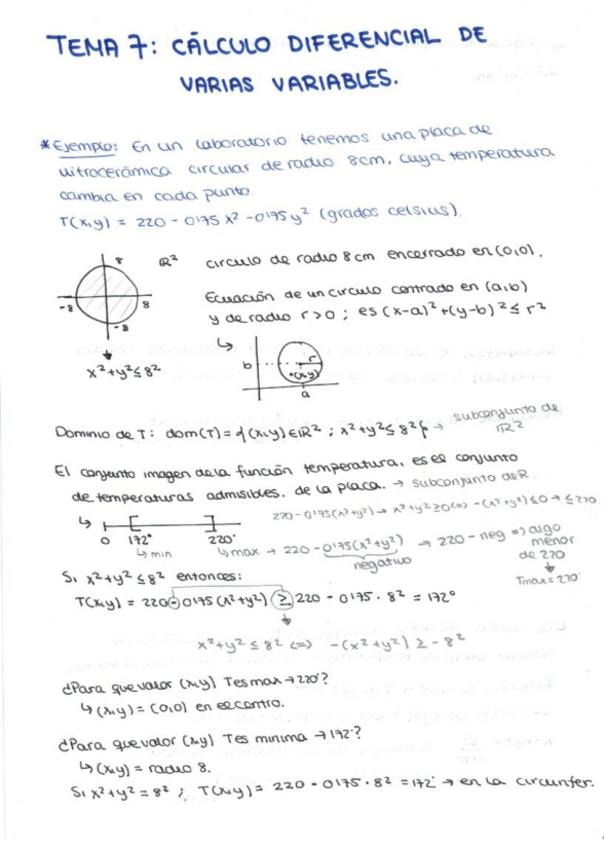 TEMA 7: CÁLCULO DIFERENCIAL DE
VARIAS VARIABLES.
*Ejemplo: En un laboratorio tenemos una placa de
vitrocerámica circular de radio 8cm, cuya temperatura
cambia en cada punto
T(x,y) = 220 - 0'75 x² - 0'75 y² (grados celsius).
8
-8 8
-8
ℝ²
circulo de radio 8cm encerrado en (0,0).
Ecuación de un circulo centrado en (a,b)
y de radio r>0; es (x-a)²+(y-b)² ≤ r²
x²+y² ≤ 8²
b r
•(x,y)
a
Dominio de T: dom(T) = {(x,y) ∈ ℝ² ; x²+y² ≤ 8²} → subconjunto de
ℝ²
El conjunto imagen de la función temperatura, es el conjunto
de temperaturas admisibles. de la placa. → subconjunto de ℝ.
220 - 0'75(x²+y²) → x²+y² ≥ 0 <=> -(x²+y²) ≤ 0 → ≤ 220
0 172° 220°
↳ min ↳ max → 220 - 0'75(x²+y²) → 220 - neg => algo
negativo
menor
de 220
Tmax = 220°
Si x²+y² ≤ 8² entonces:
T(x,y) = 220 - 0'75 (x²+y²) ≥ 220 - 0'75 · 8² = 172°
x²+y² ≤ 8² <=> -(x²+y²) ≥ -8²
¿Para que valor (x,y) T es max → 220°?
↳ (x,y) = (0,0) en el centro.
¿Para que valor (x,y) T es minima → 172°?
↳ (x,y) = radio 8.
Si x²+y² = 8² ; T(x,y) = 220 - 0'75 · 8² = 172° → en la circunfer.